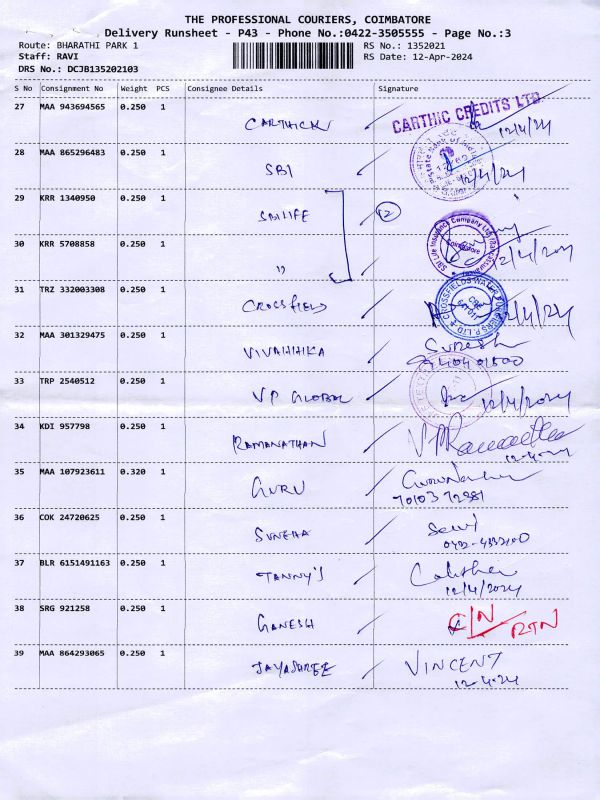 THE PROFESSIONAL COURIERS, COIMBATORE
Delivery Runsheet - P43 - Phone No.:0422-3505555 - Page No.:3
Route: BHARATHI PARK 1 RS No.: 1352021
Staff: RAVI RS Date: 12-Apr-2024
DRS No.: DCJB135202103
S No Consignment No Weight PCS Consignee Details Signature
27 MAA 943694565 0.250 1 CARTHICK CARTHIC CREDITS LTD 12/4/24
28 MAA 865296483 0.250 1 SBI State Bank of India 12/4/24
29 KRR 1340950 0.250 1 SBILIFE 12
30 KRR 5708858 0.250 1 " SBI Life Insurance Company Ltd Coimbatore 12/4/24
31 TRZ 332003308 0.250 1 CROSSFIELD CROSSFIELDS WATER P. LTD 12/4/24
32 MAA 301329475 0.250 1 VIVAHHIKA Suresh
33 TRP 2540512 0.250 1 VP GLOBAL 12/4/2024
34 KDI 957798 0.250 1 RAMANATHAN
12-4-24
35 MAA 107923611 0.320 1 GURU
7010372981
36 COK 24720625 0.250 1 SUNEHA
0422-4332100
37 BLR 6151491163 0.250 1 TANNY'S
12/4/2024
38 SRG 921258 0.250 1 GANESH C/N RTN
39 MAA 864293065 0.250 1 JAYASHREE VINCENT
12-4-24